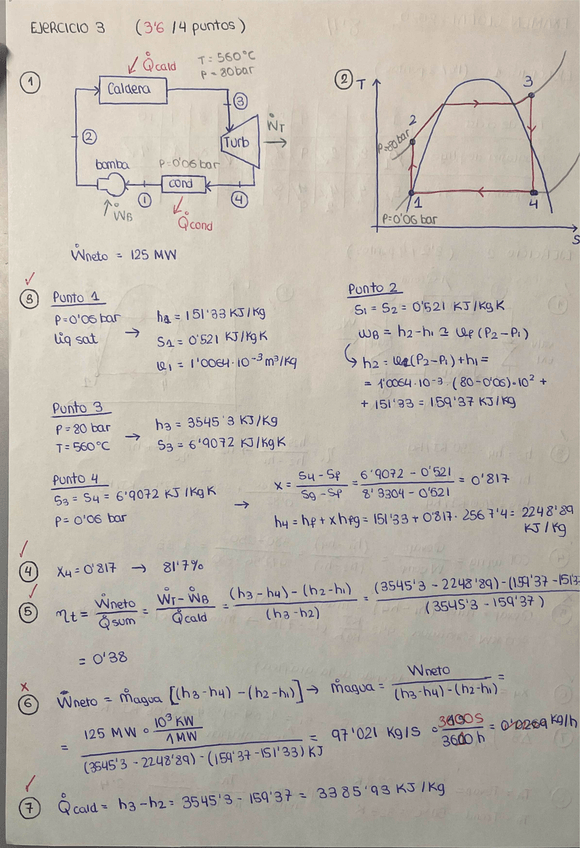 EJERCICIO 3 (3'6 /4 puntos)
① Q̇cald T = 560°C
P = 80 bar
Caldera
③
②
Turb
ẆT
bomba
P = 0'06 bar
cond
①
④
ẆB
Q̇cond
Ẇneto = 125 MW
② T
3
2
P=80 bar
1
4
P=0'06 bar
S
③ Punto 1
P=0'06 bar
liq sat → h1 = 151'33 KJ/Kg
S1 = 0'521 KJ/KgK
v1 = 1'0064·10⁻³ m³/Kg
Punto 2
S1 = S2 = 0'521 KJ/KgK
wB = h2-h1 ≅ vf (P2-P1)
↳ h2 = (P2-P1) + h1 =
= 1'0064·10⁻³ (80-0'06)·10² +
+ 151'33 = 159'37 KJ/Kg
Punto 3
P = 80 bar
T = 560°C → h3 = 3545'3 KJ/Kg
S3 = 6'9072 KJ/KgK
Punto 4
S3 = S4 = 6'9072 KJ/KgK
P = 0'06 bar
→ x = (S4 - Sf)/(Sg - Sf) = (6'9072 - 0'521)/(8'3304 - 0'521) = 0'817
h4 = hf + x hfg = 151'33 + 0'817 · 2567'4 = 2248'89
KJ/Kg
④ X4 = 0'817 → 81'7%
⑤ ηt = Ẇneto/Q̇sum = (ẆT - ẆB)/Q̇cald = ((h3-h4) - (h2-h1))/(h3-h2) = (3545'3 - 2248'89) - (159'37 - 151'3/(3545'3 - 159'37)
= 0'38
x
⑥ Ẇneto = ṁagua [(h3-h4) - (h2-h1)] → ṁagua = Wneto/((h3-h4) - (h2-h1)) =
= (125 MW · 10³ KW/1 MW)/((3545'3 - 2248'89) - (159'37 - 151'33) KJ) = 97'021 Kg/s · = Kg/h
⑦ Q̇cald = h3 - h2 = 3545'3 - 159'37 = 3385'93 KJ/Kg